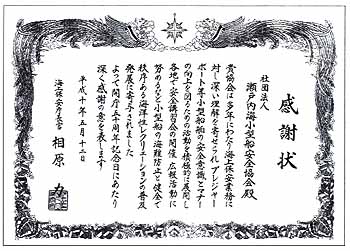 感謝状
社団法人
瀬戸内海小型船安全協会殿
貴協会は多年にわたり海上保安業務に
対し深い理解を寄せられプレジャー
ボート等小型船舶の安全意識とマナー
の向上を図るための活動を積極的に展開し
各地で安全講習会の開催広報活動に
努めるなど小型船の海難防止と健全で
秩序ある海洋性レクリエーションの普及
発展に寄与されました
よって開庁五十周年記念日にあたり
深く感謝の意を表します
平成十年五月十二日
海上保安庁長官
相原力